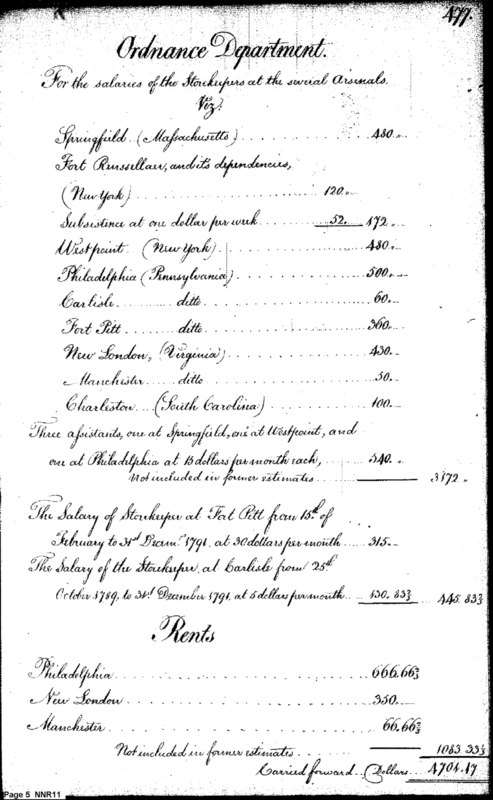 477.
Ordnance Department.
For the salaries of the Storekeepers at the several Arsenals.
Viz.t
Springfield. (Massachusetts) .......... 480 "
Fort Renssellaer, and it's dependencies,
(New York) .......... 120 "
Subsistence at one dollar per week .... 52. 172 "
Westpoint. (New York) .......... 480 "
Philadelphia (Pennsylvania) .......... 500 "
Carlisle .......... ditto .......... 60 "
Fort Pitt .......... ditto .......... 360 "
New London, (Virginia) .......... 430 "
Manchester .......... ditto .......... 50 "
Charleston ... (South Carolina) .......... 100 "
Three assistants, one at Springfield, one at Westpoint, and
one at Philadelphia at 15 dollars per month each, .... 540 "
Not included in former estimates .......... 3172 "
The Salary of Storekeeper at Fort Pitt from 15th of
February to 31st Decem.r 1791, at 30 dollars per month .... 315 "
The Salary of the Storekeeper, at Carlisle from 25th
October 1789, to 31st December 1791, at 5 dollars per month .... 130. 83⅓ 445. 83⅓
Rents
Philadelphia .......... 666.66⅔
New London .......... 350 "
Manchester .......... 66.66⅔
Not included in former estimates .......... 1083 33⅓
Carried forward .. (Dollars .... 4701.17
Page 5 NNR11